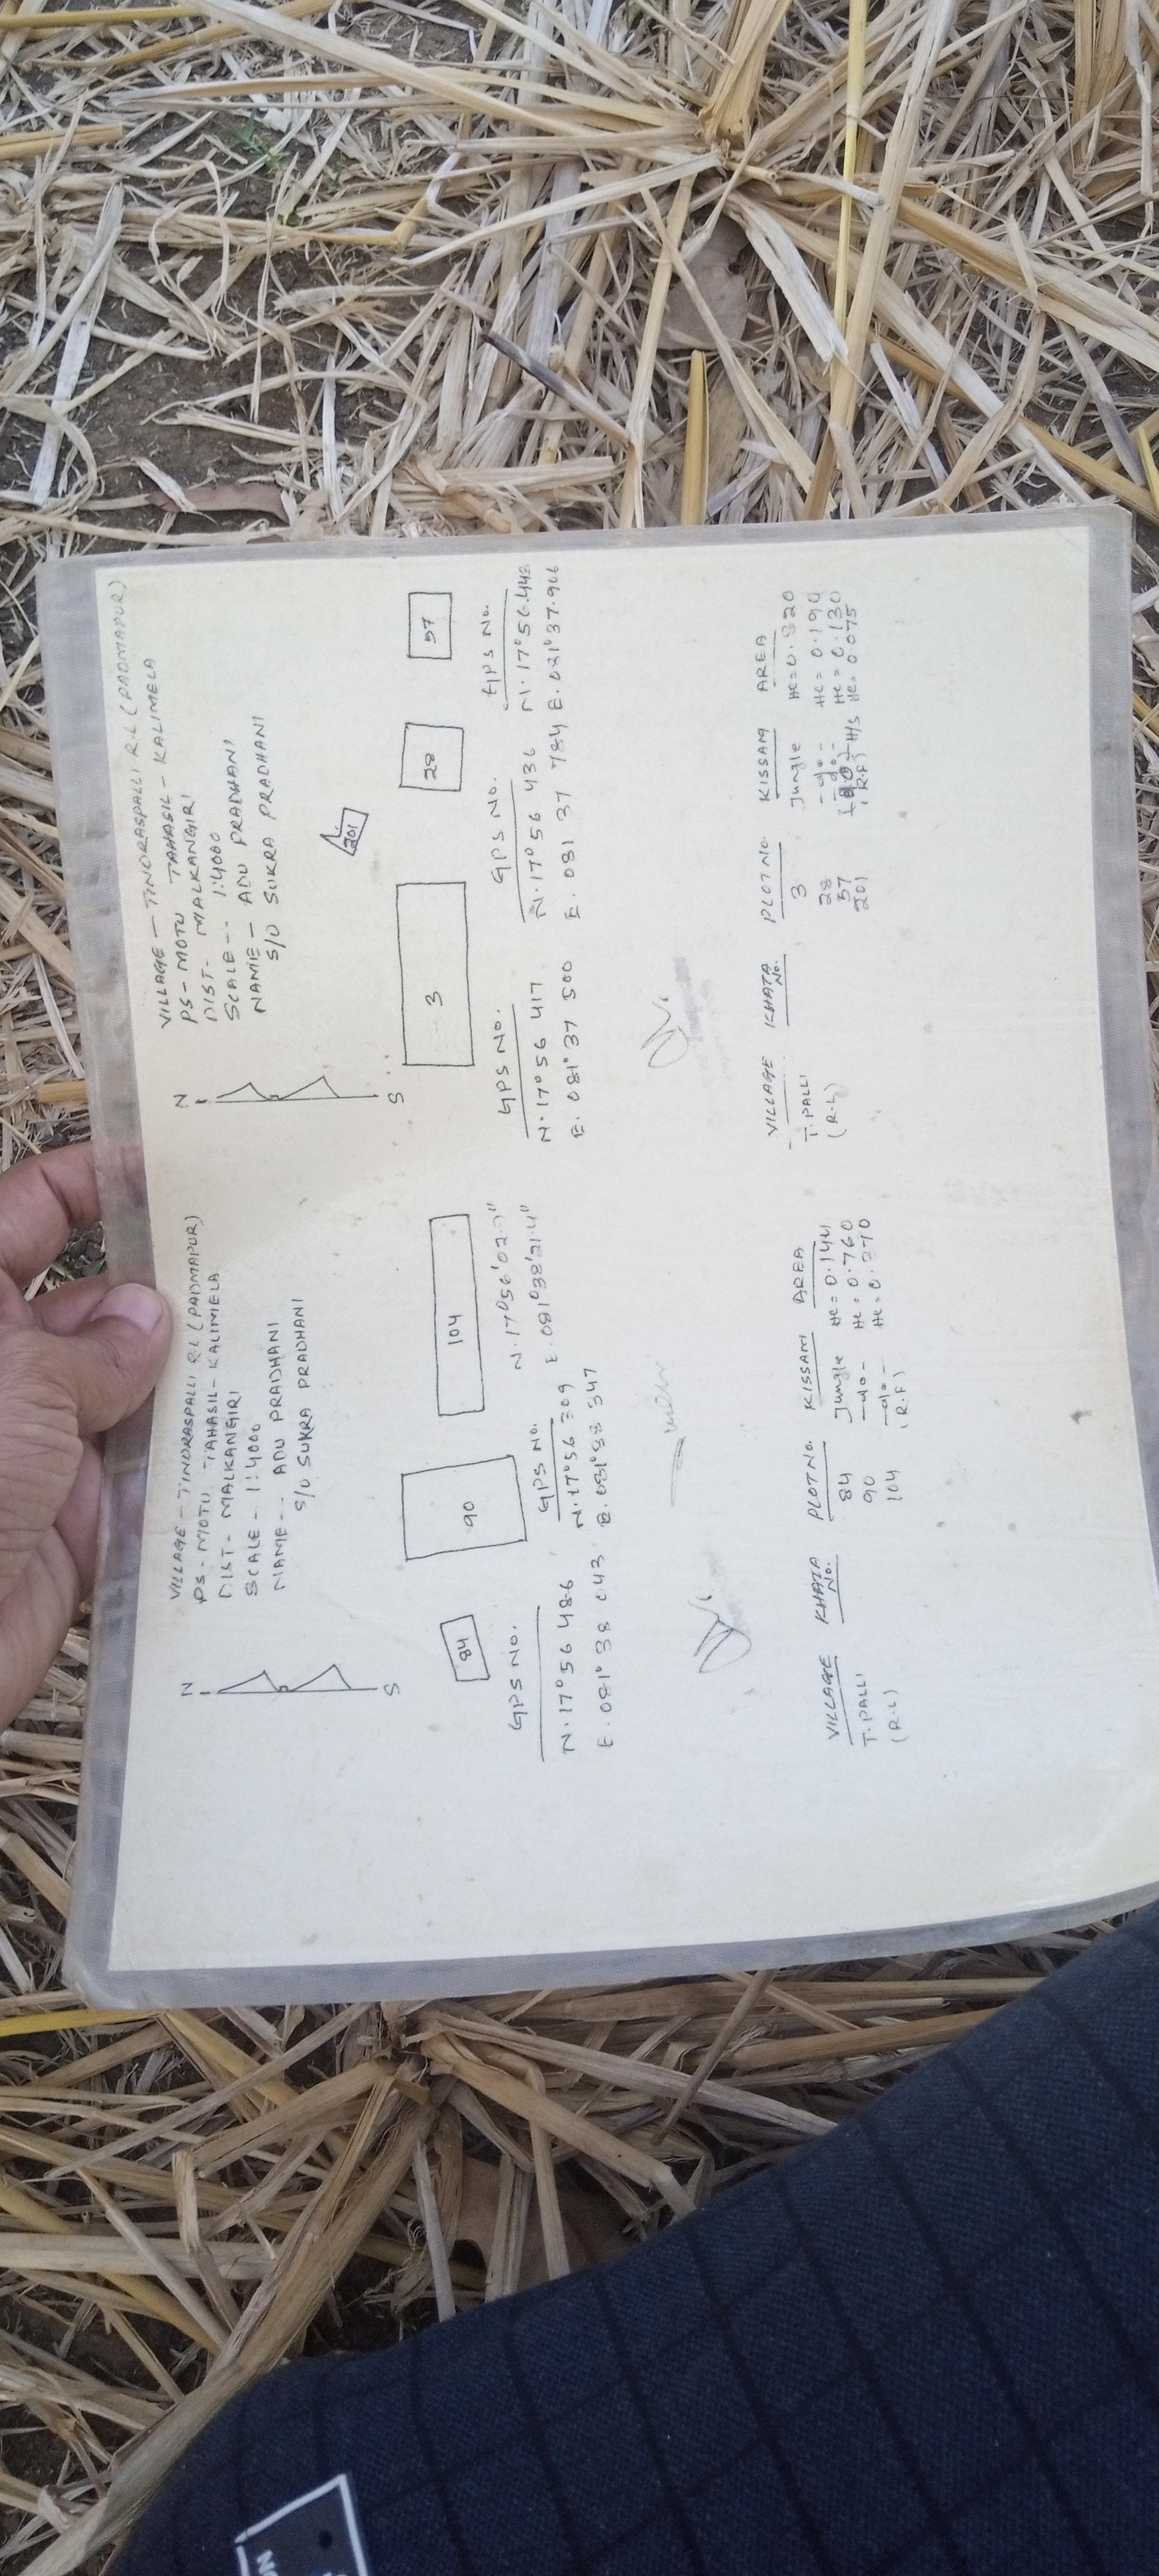 VILLAGE - TINDRASPALLI R.L (PADMAPUR)
PS - MOTU TAHASIL - KALIMELA
DIST - MALKANGIRI
SCALE - 1:4000
NAME - ADU PRADHANI
S/O SUKRA PRADHANI
N
S
84
90
104
GPS No.
N. 17° 56 486
E. 081° 38 043
GPS No.
N. 17° 56 309
E. 081° 38 347
N. 17° 56' 02.9"
E. 081° 38' 21.4"
VILLAGE KHATA No. PLOT NO. KISSAM AREA
T. PALLI 84 Jungle He = 0.144
(R.L) 90 -do- He = 0.760
104 -do- He = 0.270
(R.F)
VILLAGE - TINDRASPALLI R.L (PADMAPUR)
PS - MOTU TAHASIL - KALIMELA
DIST - MALKANGIRI
SCALE - 1:4000
NAME - ADU PRADHANI
S/O SUKRA PRADHANI
N
S
3
201
28
57
GPS No.
N. 17° 56 417
E. 081° 37 500
GPS No.
N. 17° 56 436
E. 081 37 784
GPS No.
N. 17° 56.443
E. 081° 37.906
VILLAGE KHATA No. PLOT NO. KISSAM AREA
T. PALLI 3 Jungle He =
(R.L) 28 -do- He = 0.190
57 -do- He = 0.130
201 H/S He = 0.075
(R.F)